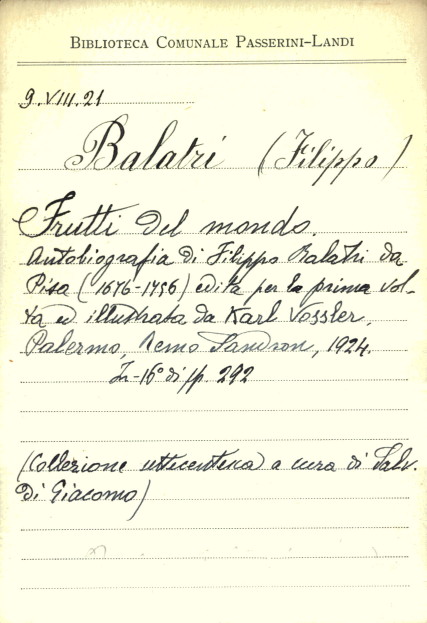 BIBLIOTECA COMUNALE PASSERINI-LANDI
9.VIII.21
Balatri (Filippo)
Frutti del mondo.
Autobiografia di Filippo Balatri da
Pisa (1676-1756) edita per la prima vol-
ta ed illustrata da Karl Vossler.
Palermo, Remo Sandron, 1924.
In-16° di pp. 292
(Collezione settecentesca) a cura di Salv.
Di Giacomo)